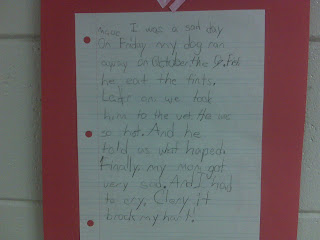 I was a sad day
On Friday my dog ran
away on October the
he eat the
Lader on we took
him to the vet
so hot. And he
told as what haped.
Finally my mom got
very sad. And I had
to cry. Clary it
brock my hart.